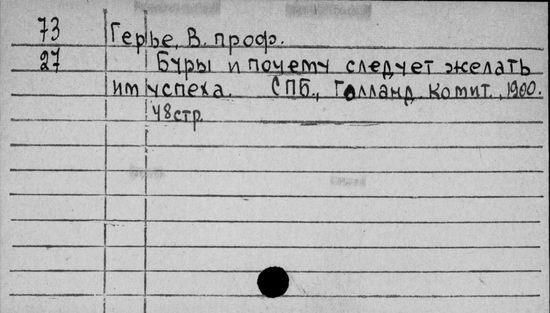 73 Герье, В. проф.
27 Буры и почему следует желать
им успеха. СПБ., Голланд. Комит., 1900.
48стр.